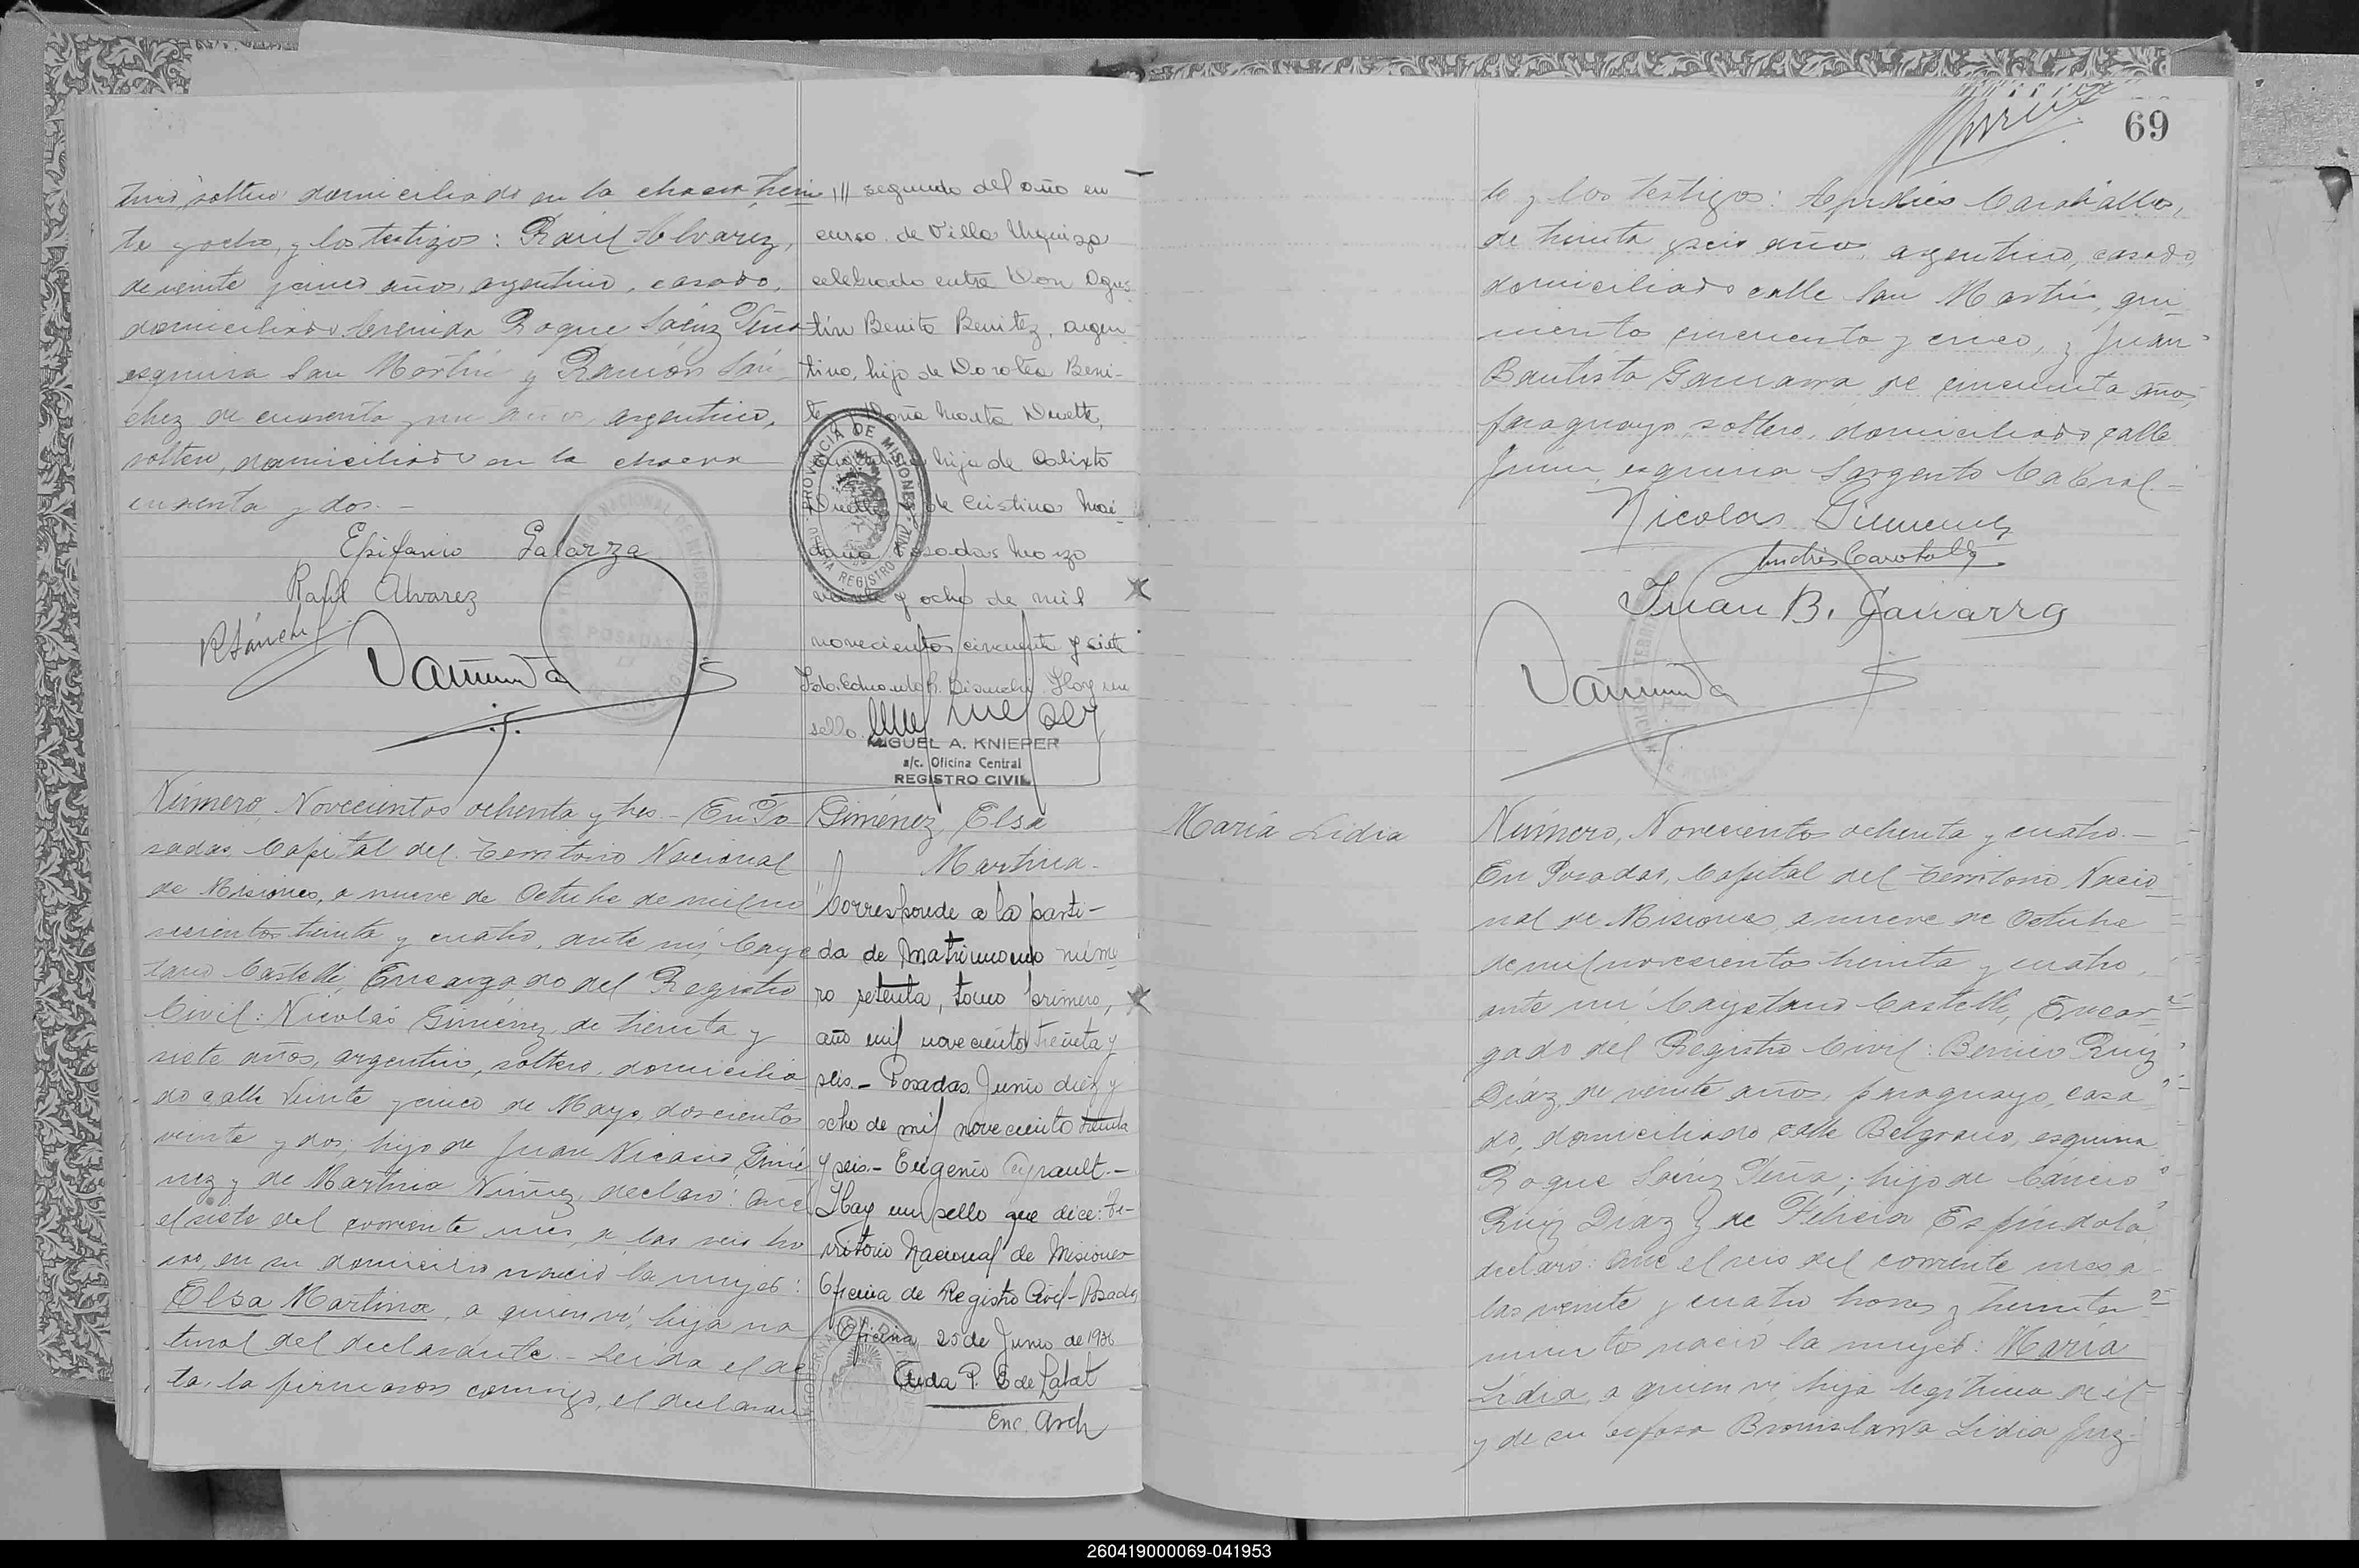 tino, soltero domiciliado en la chacra trein
ta y ocho, y los testigos: Raúl Alvarez,
de veinte y cinco años, argentino, casado,
domiciliado Avenida Roque Sáenz Peña
esquina San Martín y Ramón Sán
chez de cuarenta y un años, argentino,
soltero, domiciliado en la chacra
cuarenta y dos.-
Epifanio Galarza
Raúl Alvarez
R Sánchez
segundo del año en
curso de Villa Urquiza
celebrado entre Don Agus
tín Benito Benitez, argen
tino, hijo de Dorotea Beni-
tez y Doña Marta Duette,
argentina hija de Calixto
Duette y de Cristina Mai-
dana Posadas marzo
veinte y ocho de mil
novecientos cincuenta y siete
Fdo. Edmundo R. Bianchi. Hay un
sello.
PROVINCIA DE MISIONES
REGISTRO CIVIL
MIGUEL A. KNIEPER
a/c. Oficina Central
REGISTRO CIVIL
Número, Novecientos ochenta y tres.- En Po
sadas, Capital del Territorio Nacional
de Misiones, a nueve de Octubre de mil no
vecientos treinta y cuatro, ante mí, Caye
tano Castelli, Encargado del Registro
Civil: Nicolás Giménez, de treinta y
siete años, argentino, soltero, domicilia
do calle Veinte y cinco de Mayo, doscientos
veinte y dos; hijo de Juan Nicasio Gimé
nez y de Martina Núñez, declaró: Que
el siete del corriente mes, a las seis ho
ras, en su domicilio nació la mujer:
Elsa Martina, a quien ví, hija na
tural del declarante.- Leída el ac
ta, la firmaron conmigo, el declaran
Giménez, Elsa
Martina.-
Corresponde a la parti-
da de Matrimonio núme
ro setenta, tomo primero,
año mil novecientos treinta y
seis.- Posadas, Junio diez y
ocho de mil novecientos treinta
y seis.- Eugenio Ayrault.-
Hay un sello que dice: Te-
rritorio Nacional de Misiones
Oficina de Registro Civil-Posadas
Oficina, 25 de Junio de 1936
Aida P. B de Labat
Enc. Arch
69
te y los testigos: Andrés Caraballo,
de treinta y seis años, argentino, casado,
domiciliado calle San Martín, qui
nientos cincuenta y cinco, y Juan
Bautista Gamarra de cincuenta años,
paraguayo, soltero, domiciliado calle
Junín, esquina Sargento Cabral.-
Nicolas Gimenez
Andrés Caraballo
Juan B. Gamarra
María Lidia
Número, Novecientos ochenta y cuatro.-
En Posadas, Capital del Territorio Nacio
nal de Misiones, a nueve de Octubre
de mil novecientos treinta y cuatro,
ante mí Cayetano Castelli, Encar
gado del Registro Civil: Benicio Ruiz
Díaz, de veinte años, paraguayo, casa
do, domiciliado calle Belgrano, esquina
Roque Sáenz Peña; hijo de Cancio
Ruiz Díaz y de Felicia Espíndola,
declaró: Que el seis del corriente mes, a
las veinte y cuatro horas y treinta
minutos nació la mujer: María
Lidia, a quien ví, hija legítima de él
y de su esposa Bronislawa Lidia
260419000069-041953